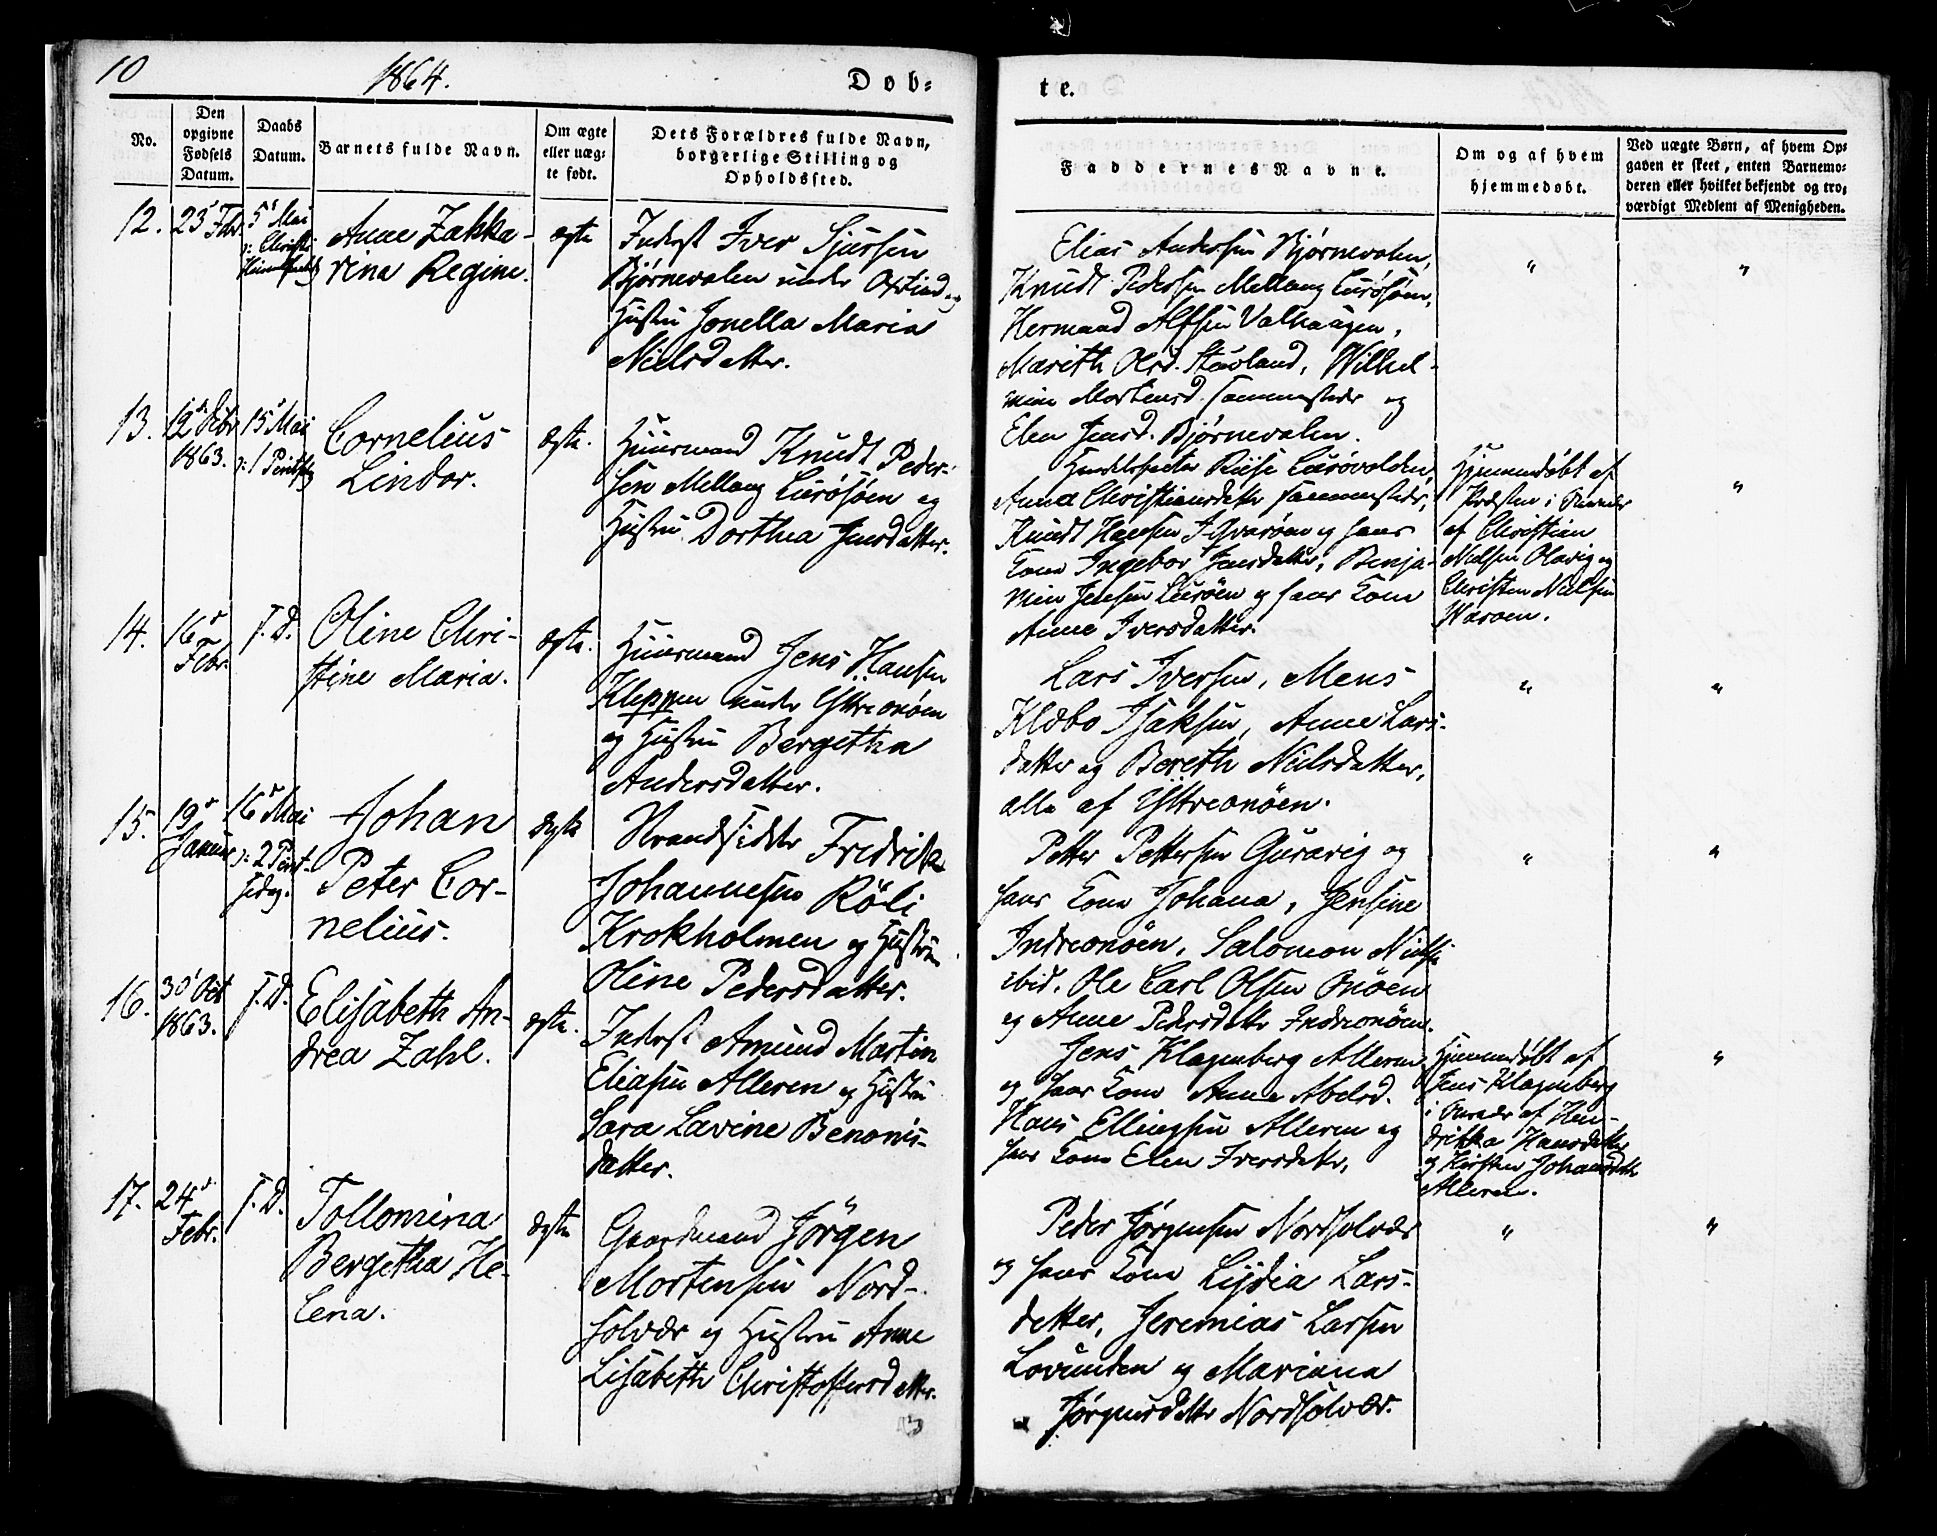 10
1864.
Døb-
te.
No.
Den opgivne Fødsels Datum.
Daabs Datum.
Barnets fulde Navn.
Om ægte eller uæg-te født.
Dets Forældres fulde Navn, borgerlige Stilling og Opholdssted.
Faddernes Navne.
Om og af hvem hjemmedøbt.
Ved uægte Børn, af hvem Op-
gaven er skeet, enten Barnemo-
deren eller hvilket bekjendt og tro-
værdigt Medlem af Menigheden.
12.
23 Febr
5 Mai
Christi
Anne Zakka-
rina Regine.
ægte
Inderst Iver Sjursen
Bjørnevalen under
og
Hustru Jonella Maria
Nielsdatter.
Elias Andersen Bjørnevalen,
Knudt Pedersen Mellang Lurösöen,
Hermand Alfsen Valhaugen,
Marith Olsd. Stuvland, Wilhel-
mine Mortensd. sammesteds og
Elen Jensd. Bjørnevalen.
"
"
13.
12 Debr
1863.
15 Mai
Cornelius
Lindor.
ægte.
Huusmand Knudt Peder-
sen Mellang Lurösöen og
Hustru Dorthea Jensdatter.
Riise Lurövolden,
Anna Christiansdatter sammesteds,
Knudt Hansen og hans
Kone Ingebor Jensdatter, Benja-
min Jensen Luröen og hans Kone
Anne Iversdatter.
Hjemmedøbt af
Præsten i
af Christian
Nielsen Olavig og
Christen Nielsen
Waroen.
"
14.
16
Febr.
S. D.
Oline Chri-
stine Maria.
ægte.
Huusmand Jens Hansen
Kleppen under Yttreonöen
og Hustru Bergitha
Andersdatter.
Lars Iversen, Mens
Klæbo Isaksen, Anne Lars-
datter og Bereth Nielsdatter,
alle af Yttreonöen.
"
"
15.
19
Januar
16 Mai
2 Pint-
sedag.
Johan
Peter Cor-
nelius.
ægte
Strandsidder Fredrik
Johannesen Röli
Krokholmen og Hustru
Oline Pedersdatter.
Petter Pettersen Guravig og
hans Kone Johana, Jensine
Indreonöen, Salomon Niels
ibid. Ole Carl Olsen Onöen
og Anne Pedersdatter Indreonöen.
"
"
16.
30 Oct
1863.
S. D.
Elisabeth An-
drea Zahl.
ægte.
Inderst Amund Martin
Eliasen Alleren og Hustru
Sara Lavine Benonis-
datter.
Jens Klagenberg Alleren
og hans Kone Anne Abelsd.
Hans Ellingsen Alleren og
hans Kone Elen Iversdatter.
Hjemmedøbt af
Jens Klagenberg
i Overvær af Hen-
drikka Hansdatter
og Kirsten Johansdatter
Alleren.
"
17.
24
Febr.
S. D.
Tollomina
Bergetha He-
lena.
ægte
Gaardmand Jörgen
Mortensen Nord-
solvær og Hustru Anne
Lisabeth Christoffersdatter.
Peder Jørgensen Nordsolvær
og hans Kone Lydia Lars-
datter, Jeremias Larsen
Lovunden og Mariana
Jørgensdatter Nordsolvær.
"
"